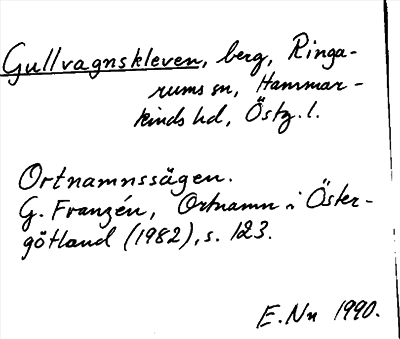 Gullvagnskleven, berg, Ringa-
rums sn, Hammar-
kinds hd, Östg. l.
Ortnamnssägen.
G. Franzén, Ortnamn i Öster-
götland (1982), s. 123.
E. Nn 1990.